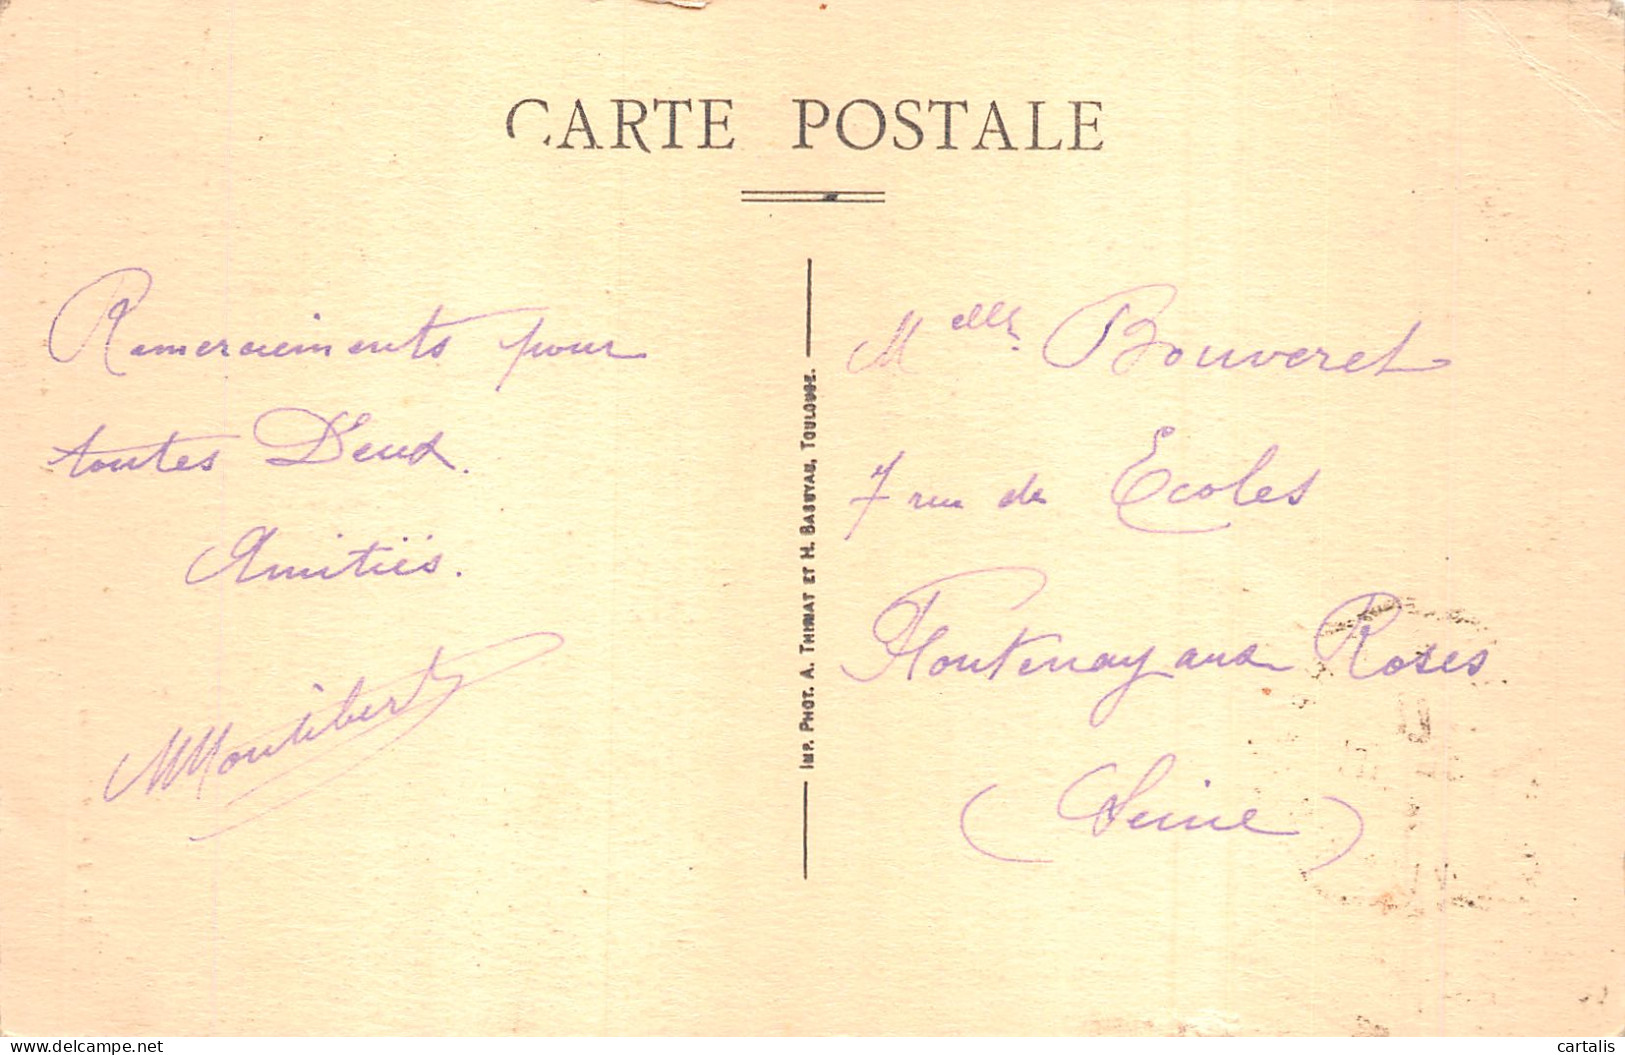 CARTE POSTALE
Remerciements pour
toutes Deux.
Amitiés.
IMP. PHOT. A. THIRIAT ET H. BASUYAU, TOULOUSE.
Melles Bouveret
7 rue de Ecoles
Fontenay aux Roses
(Seine)
www.delcampe.net
cartalis